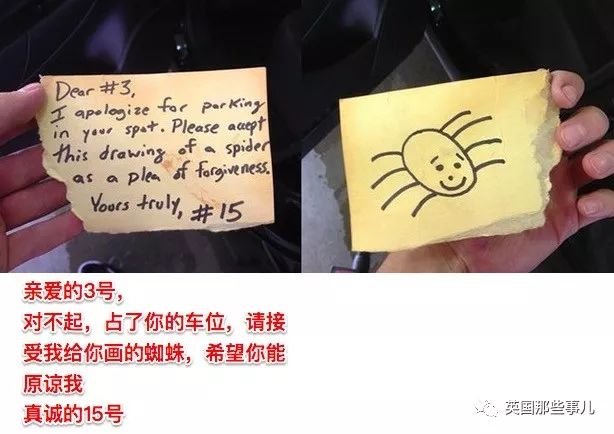 Dear #3,
I apologize for parking
in your spot. Please accept
this drawing of a spider
as a plea of forgiveness.
Yours truly, #15
亲爱的3号，
对不起，占了你的车位，请接
受我给你画的蜘蛛，希望你能
原谅我
真诚的15号
英国那些事儿